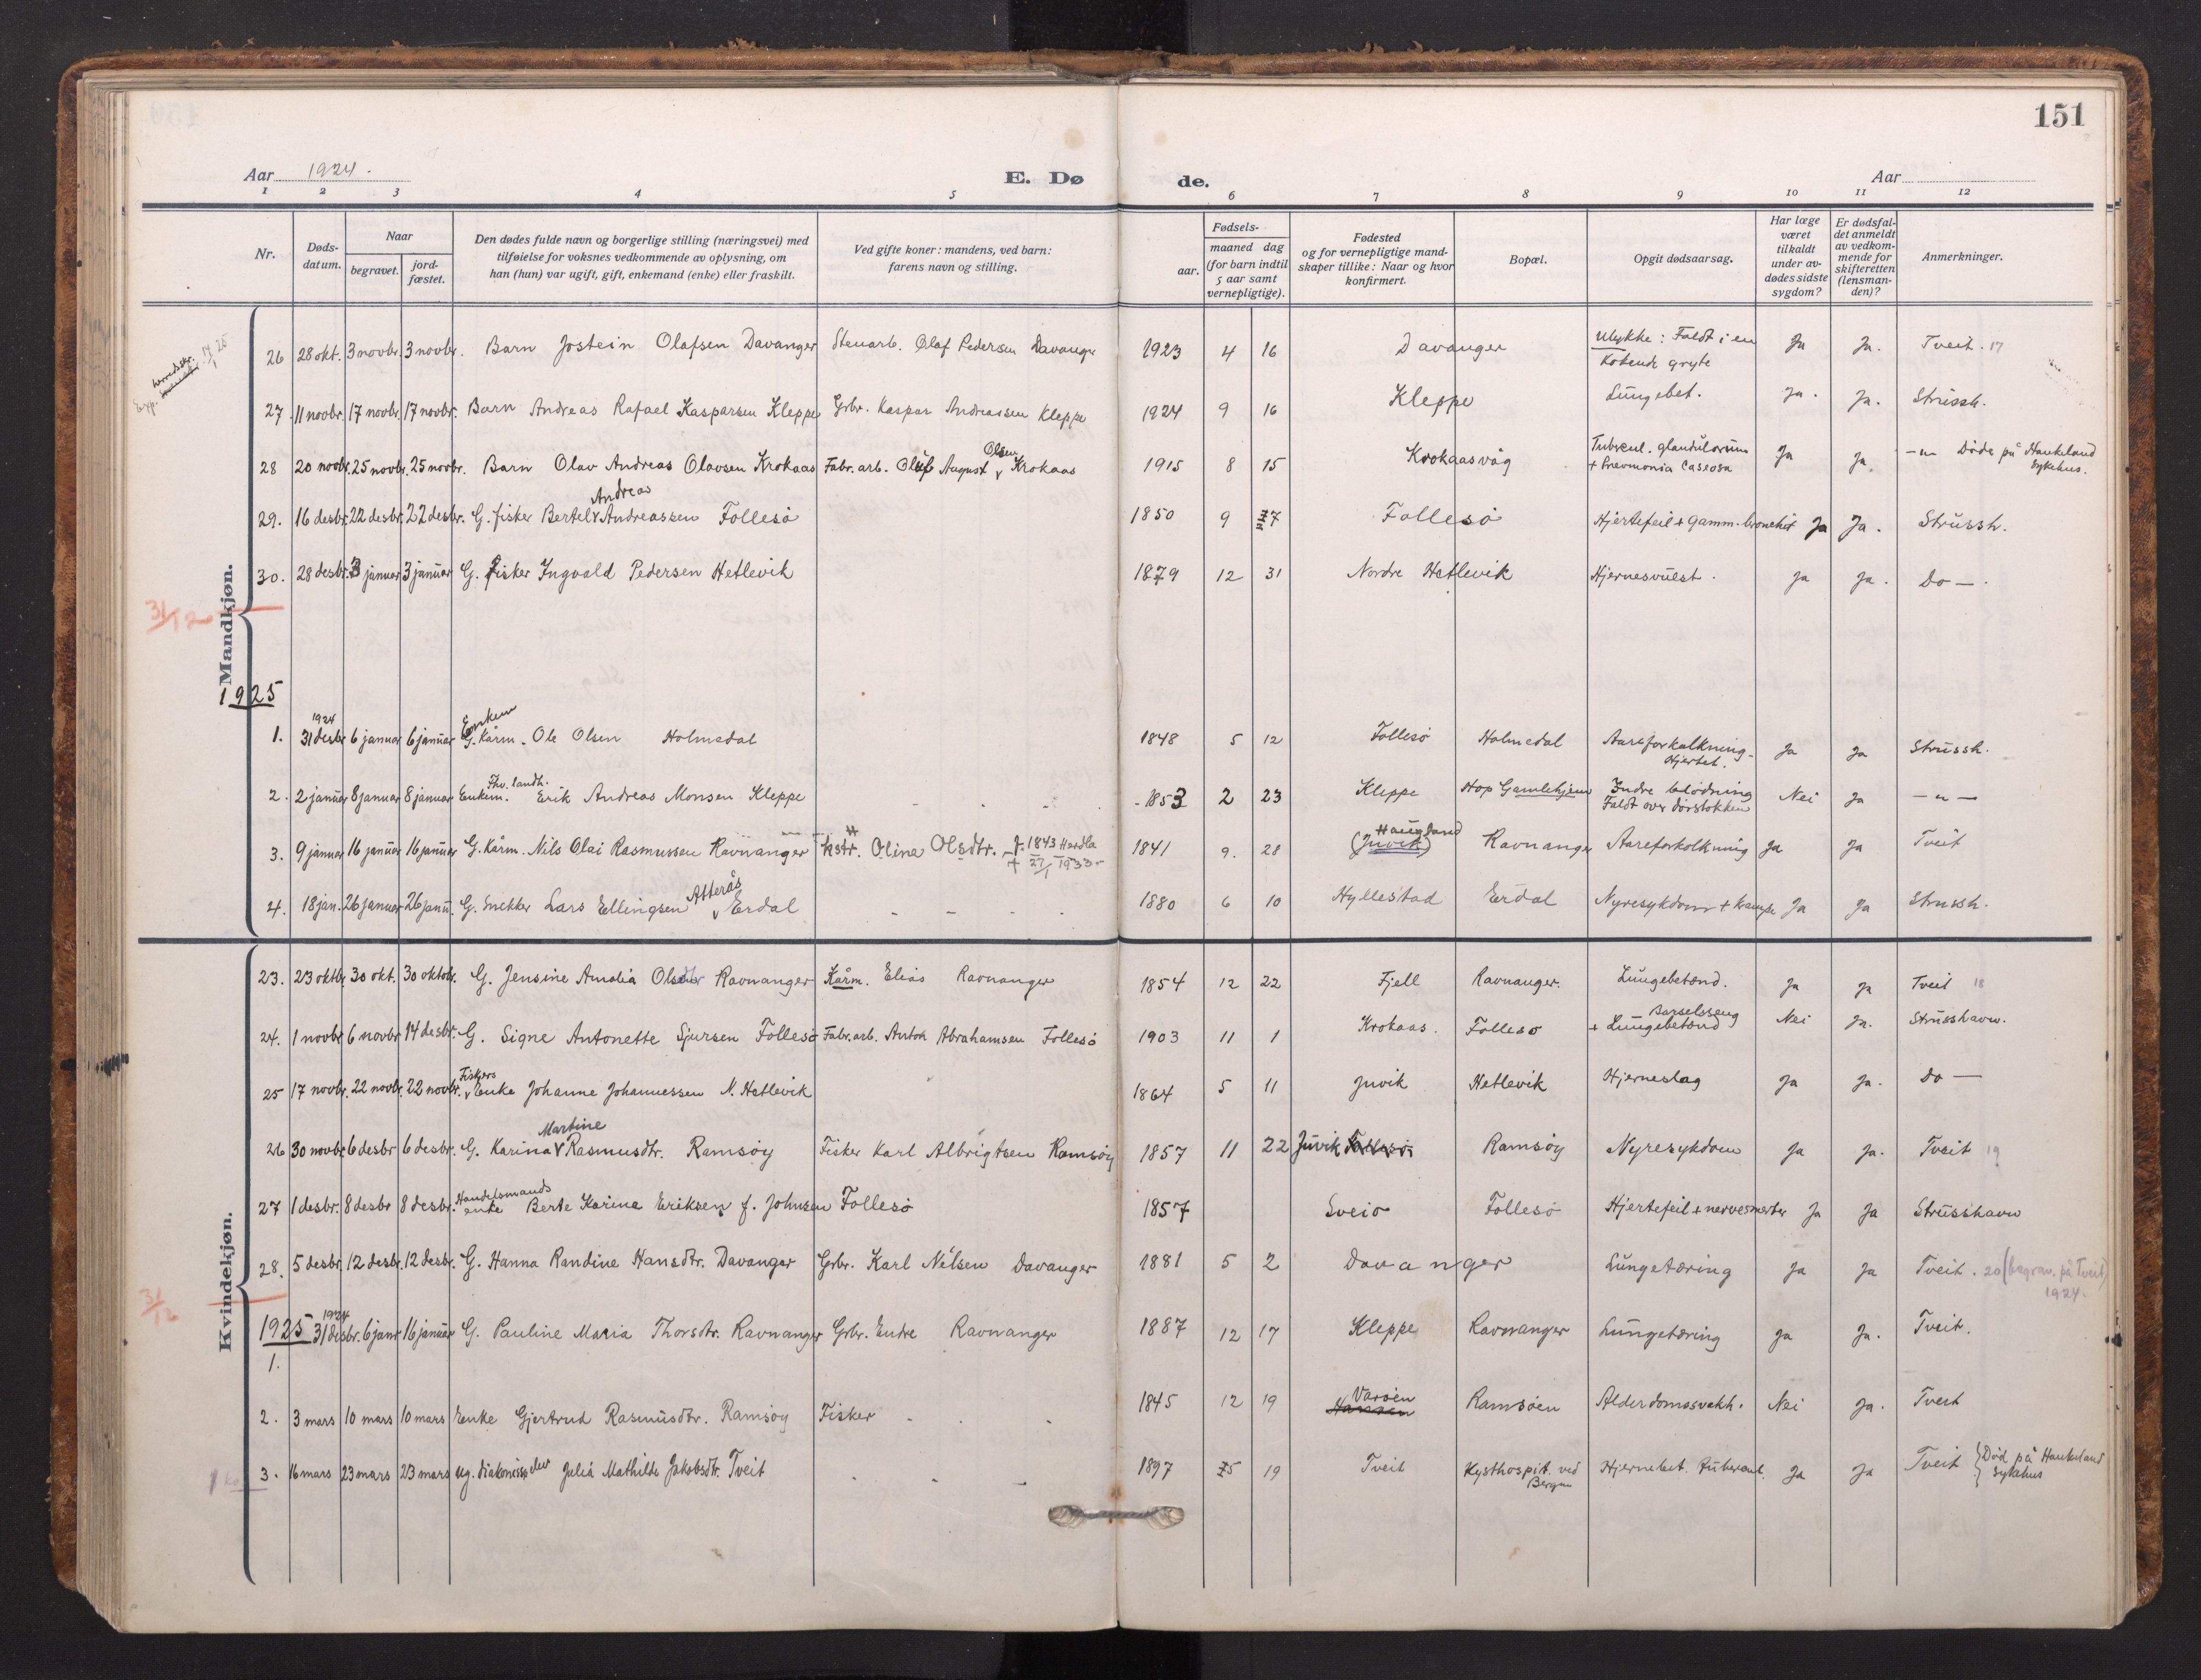 151
Aar 1924.
E. Dø de.
Aar
1 2 3 4 5 6 7 8 9 10 11 12
Nr.
Døds-datum.
Naar
begravet.
jord-fæstet.
Den dødes fulde navn og borgerlige stilling (næringsvei) med
tilføielse for voksnes vedkommende av oplysning, om
han (hun) var ugift, gift, enkemand (enke) eller fraskilt.
Ved gifte koner: mandens, ved barn:
farens navn og stilling.
Fødsels-
aar.
maaned dag
(for barn indtil
5 aar samt
vernepligtige).
Fødested
og for vernepligtige mand-
skaper tillike: Naar og hvor
konfirmert.
Bopæl.
Opgit dødsaarsag.
Har læge
været
tilkaldt
under av-
dødes sidste
sygdom?
Er dødsfal-
det anmeldt
av vedkom-
mende for
skifteretten
(lensman-
den)?
Anmerkninger.
Mandkjøn.
26 28 okt. 3 novbr. 3 novbr. Barn Jostein Olafsen Davanger Stenarb. Olaf Pedersen Davanger 1923 4 16 Davanger Ulykke: Faldt i en kokende gryte Ja Ja. Tveit. 17
27. 11 novbr. 17 novbr. 17 novbr. Barn Andreas Rafael Kasparsen Kleppe Grbr. Kaspar Andreassen Kleppe 1924 9 16 Kleppe Lungebet. Ja. Ja. Strussh.
28 20 novbr. 25 novbr. 25 novbr. Barn Olav Andreas Olavsen Krokaas Fabr. arb. Oluf August Olsen Krokaas 1915 8 15 Krokaasvåg Tubercul. glandulorum + Pnevmonia Caseosa Ja Ja. -"- Döde på Haukeland Sykehus.
29. 16 desbr. 22 desbr. 22 desbr. G. fisker Bertel Andreas Andreassen Follesö 1850 9 27 Follesö Hjertefeil + gamm. bronchit Ja Ja. Strussh.
30. 28 desbr. 3 januar 3 januar G. Fisker Ingvald Pedersen Hetlevik 1879 12 31 Nordre Hetlevik Hjernesvulst. Ja Ja. Do —.
31/12
1925
1. 1924 31 desbr 6 januar 6 januar Enkem G. Kårm. Ole Olsen Holmedal 1848 5 12 Follesö Holmedal Aareforkalkning - Hjertet. Ja Ja Strussh.
2. 2 januar 8 januar 8 januar Enkem. Fhv. landh. Erik Andreas Monsen Kleppe 1853 2 23 Kleppe Hop Gamlehjem Indre blödning Faldt over dörstokken Nei Ja -"-
3. 9 januar 16 januar 16 januar G. Kårm. Nils Olai Rasmussen Ravnanger kstr. Olina Olsdtr. f. 1843 Herdla + 27/1 1933 1841 9. 28 (Juvik) Haugland Ravnanger Aareforkalkning Ja Ja Tveit
4. 18 jan. 26 januar 26 janu. G. Snekker Lars Ellingsen Atterås Erdal 1880 6 10 Hyllestad Erdal Nyresykdom + krampe Ja Ja Strussh.
Kvindekjøn.
23. 23 oktbr 30 okt. 30 oktobr. G. Jensine Amalia Olsdtr Ravnanger Kårm. Elias Ravnanger 1854 12 22 Fjell Ravnanger. Lungebetænd. Ja Ja Tveit 18
24. 1 novbr 6 novbr 14 desbr. G. Signe Antonette Sjursen Follesö Fabr. arb. Anton Abrahamsen Follesö 1903 11 1 Krokaas. Follesö Barselsseng + Lungebetænd Nei Ja. Strusshavn.
25 17 novbr. 22 novbr. 22 novbr. Fiskers Enke Johanne Johannessen N. Hetlevik 1864 5 11 Juvik Hetlevik Hjerneslag Ja Ja. Do —
26 30 novbr. 6 desbr 6 desbr. G. Karina Martine Rasmusdtr. Ramsöy Fisker Karl Albrigtsen Ramsöy 1857 11 22 Juvik Follesö Ramsöy Nyresykdom Ja Ja. Tveit 19
27 1 desbr. 8 desbr 8 desbr. Handelsmands enke Berte Karine Eriksen f. Johnsen Follesö 1857 Sveio Follesö Hjertefeil + nervesmerter Ja Ja Strusshavn
28. 5 desbr. 12 desbr. 12 desbr. G. Hanna Randine Hansdtr. Davanger Grbr. Karl Nilsen Davanger 1881 5 2 Davanger Lungetæring Ja Ja Tveit. 20 (begrav. på Tveit) 1924.
31/12
1925
1. 1924 31 desbr. 6 janr 16 januar G. Pauline Maria Thorsdtr. Ravnanger Grbr. Endre Ravnanger 1887 12 17 Kleppe Ravnanger Lungetæring Ja Ja. Tveit.
2. 3 mars 10 mars 10 mars Enke Gjertrud Rasmusdtr. Ramsöy Fisker 1845 12 19 Varöen Ramsöen Alderdomssvekk. Nei Ja. Tveit
3. 16 mars 23 mars 23 mars ug. diakonisse Julia Mathilde Jakobsdtr. Tveit 1897 5 19 Tveit Kysthospit. ved Bergen Hjernebet. Tubercul. Ja Ja Tveit Död på Haukeland Sykehus